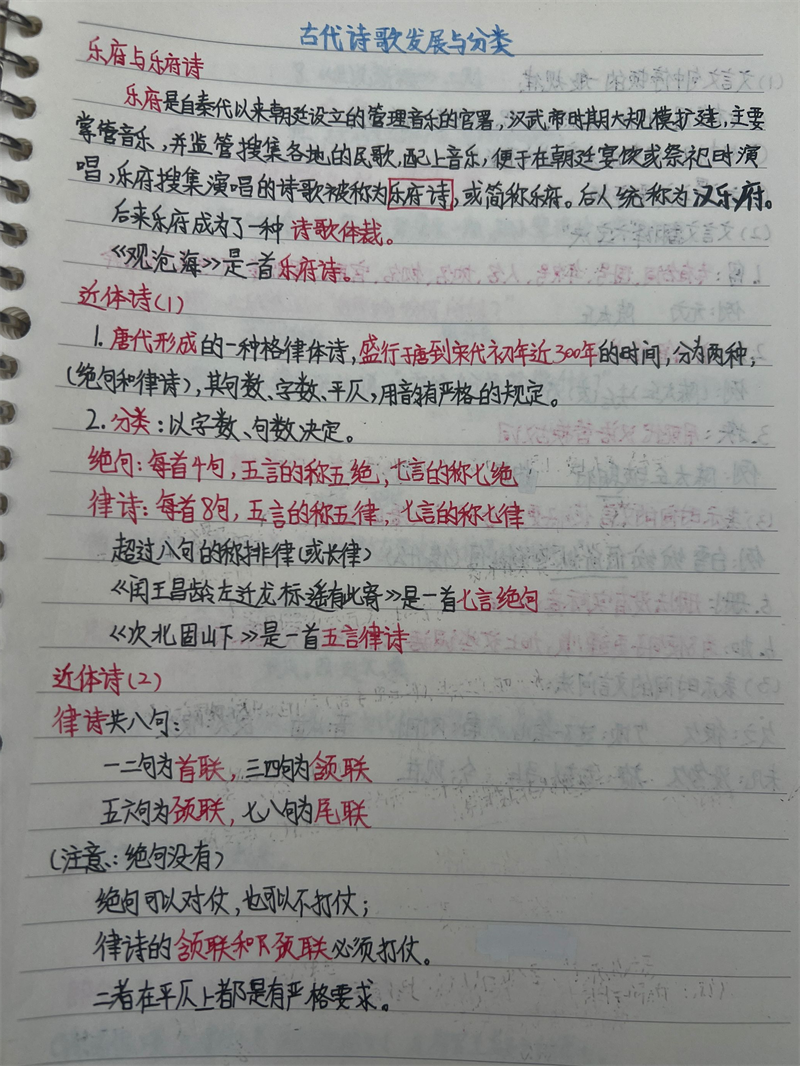 古代诗歌发展与分类
乐府与乐府诗
乐府是自秦代以来朝廷设立的管理音乐的官署，汉武帝时期大规模扩建，主要
掌管音乐，并监管搜集各地的民歌，配上音乐，便于在朝廷宴饮或祭祀时演
唱，乐府搜集演唱的诗歌被称为乐府诗，或简称乐府。后人统称为汉乐府。
后来乐府成为了一种诗歌体裁。
《观沧海》是一首乐府诗。
近体诗(1)
1. 唐代形成的一种格律体诗，盛行于唐到宋代初年近300年的时间，分为两种，
(绝句和律诗)，其句数、字数、平仄，用韵有严格的规定。
2. 分类：以字数、句数决定。
绝句：每首4句，五言的称五绝，七言的称七绝
律诗：每首8句，五言的称五律，七言的称七律
超过八句的称排律(或长律)
《闻王昌龄左迁龙标遥有此寄》是一首七言绝句
《次北固山下》是一首五言律诗
近体诗(2)
律诗共八句：
一二句为首联，三四句为颔联
五六句为颈联，七八句为尾联
(注意：绝句没有)
绝句可以对仗，也可以不打仗；
律诗的颔联和颈联必须打仗。
二者在平仄上都是有严格要求。